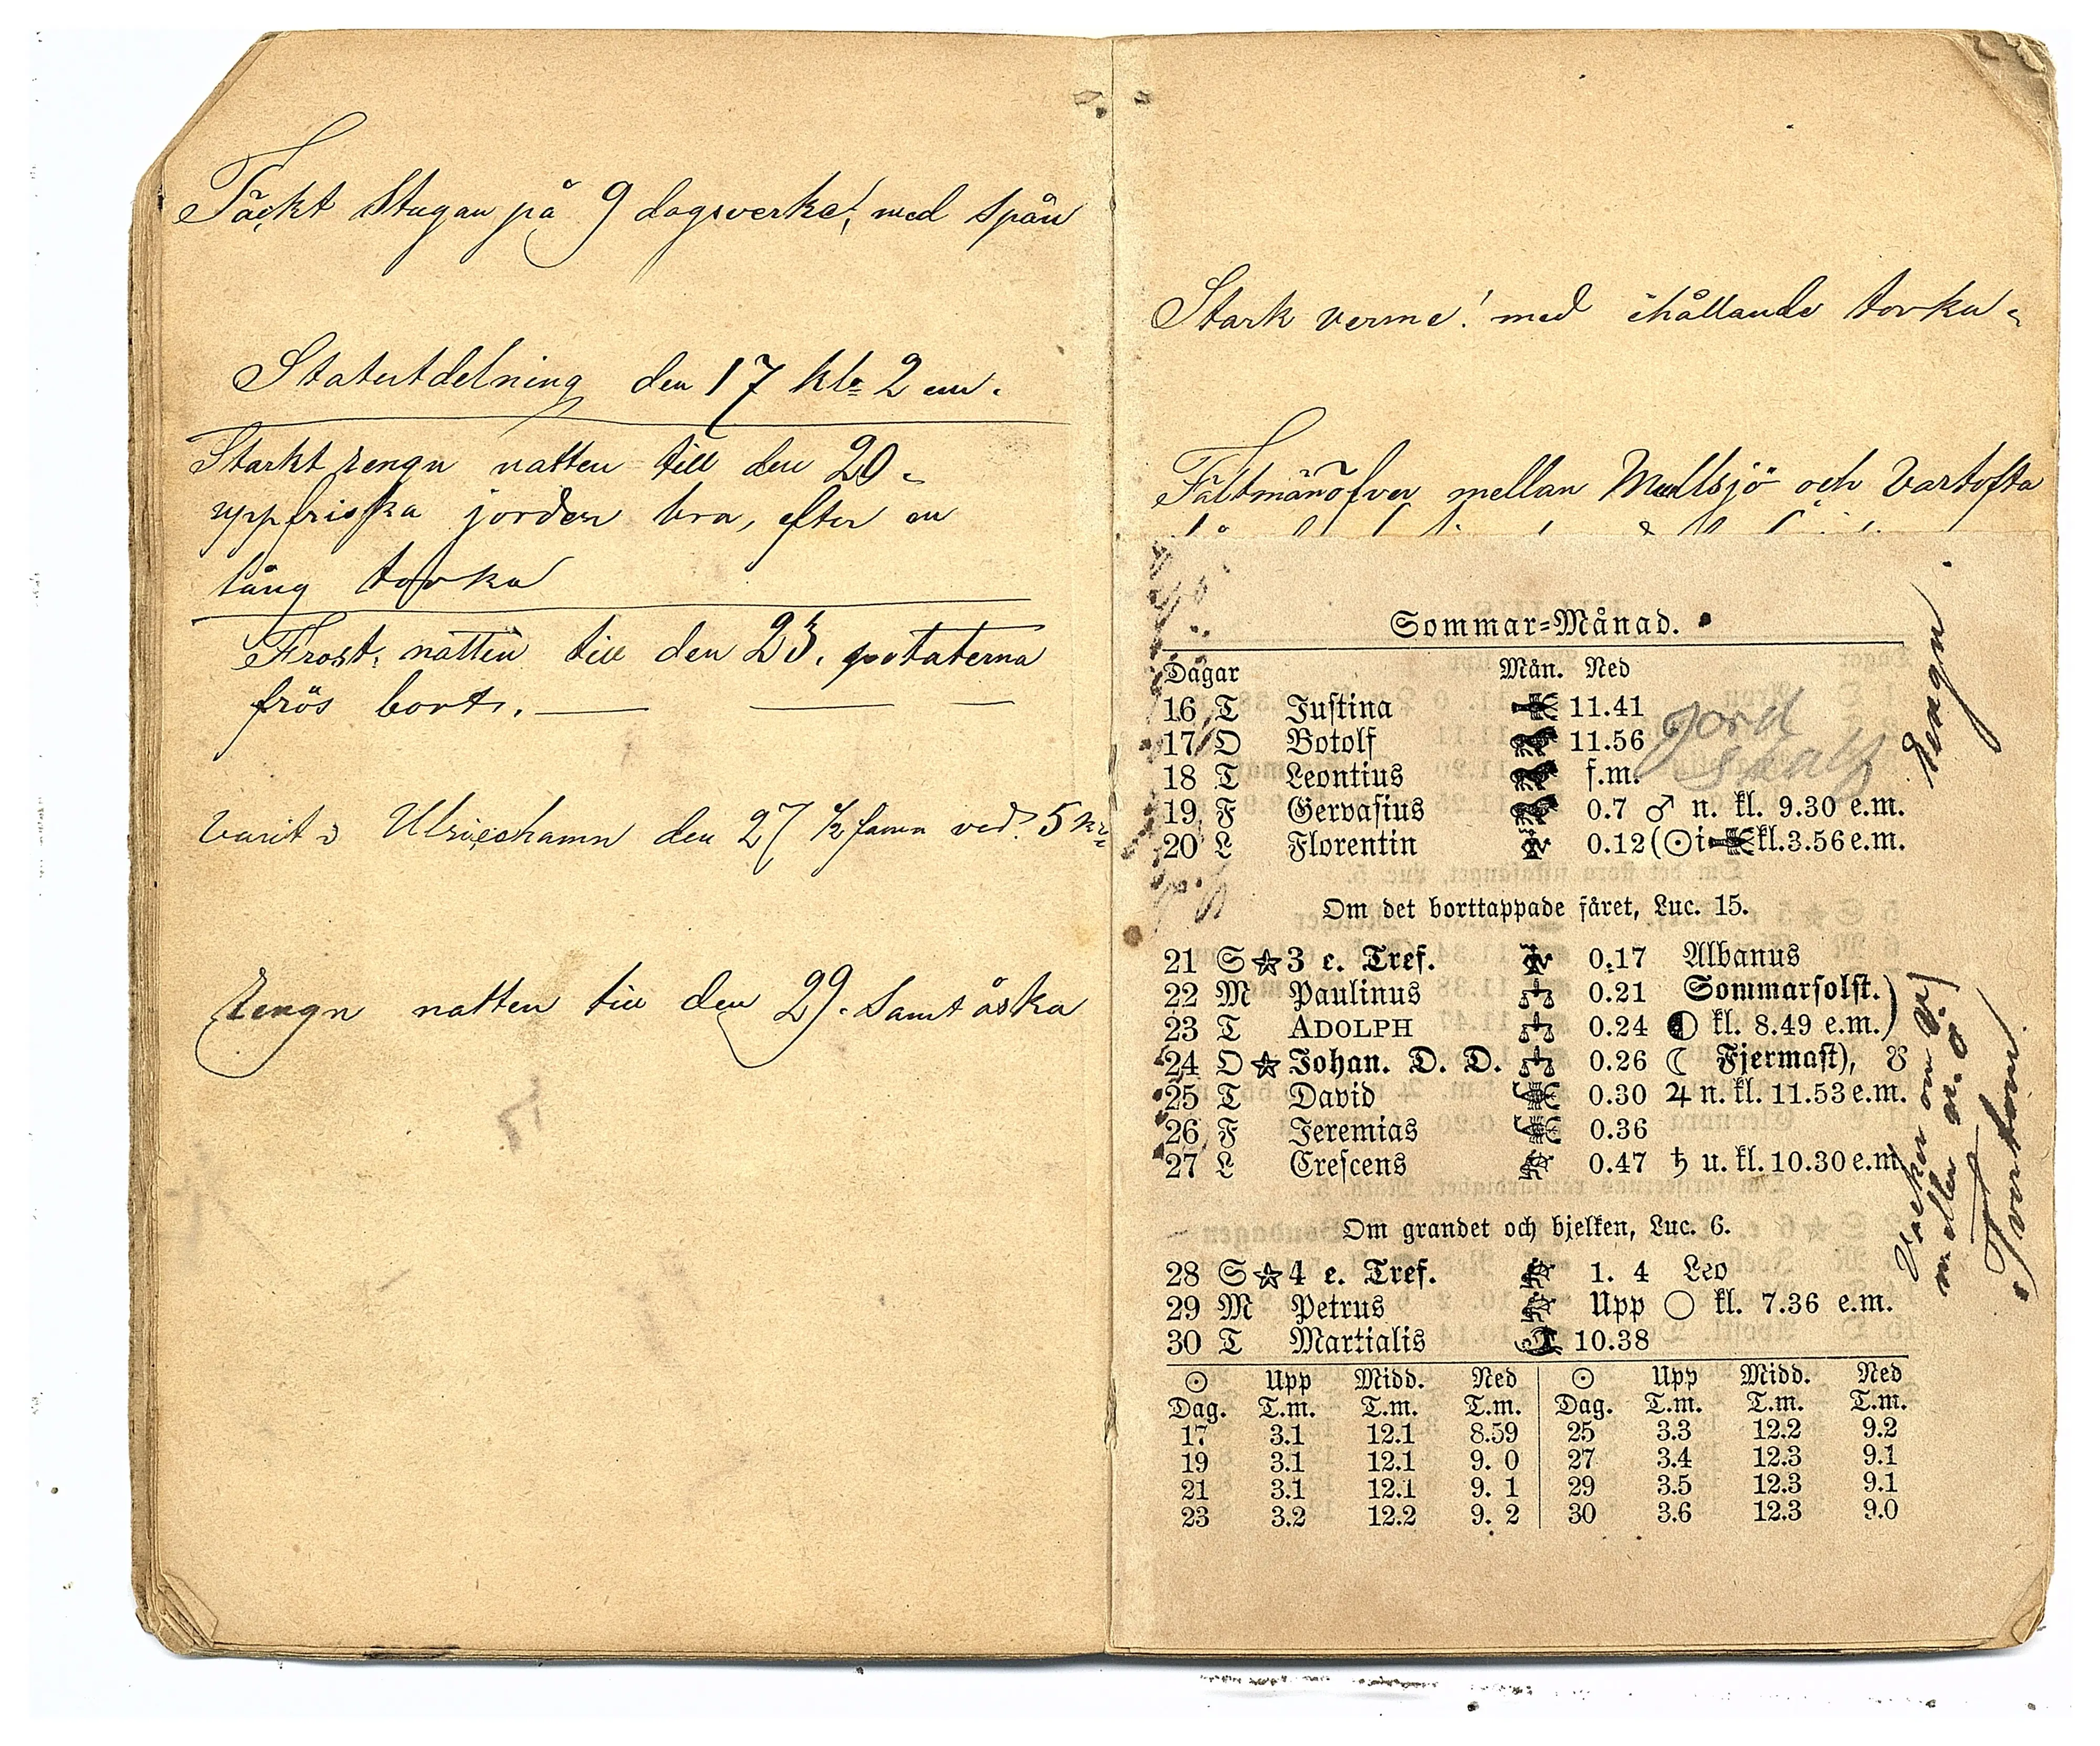 Täckt Stugan på 9 dagsverke! med spån
Statutdelning den 17 kl. 2 em.
Starkt rengn natten till den 20.
uppfriska jorden bra, efter en
lång torka
Frost, natten till den 23. potaterna
frös bort.
Varit i Ulricehamn den 27 ½ famn ved. 5 kr
Rengn natten till den 29. Samt åska
Stark verme! med ihållande torka.
Fältmanöfver mellan Mullsjö och Vartofta
Sommar-Månad.
Dagar Mån. Ned
16 T Justina 11.41
17 O Botolf 11.56
18 T Leontius f.m.
19 F Gervasius 0.7 ♂ n. kl. 9.30 e.m.
20 L Florentin 0.12 (☉ i ♋ kl. 3.56 e.m.
jord
skalf
Rengn
Om det borttappade fåret, Luc. 15.
21 S ★ 3 e. Tref. 0.17 Albanus
22 M Paulinus 0.21 Sommarsolst.)
23 T ADOLPH 0.24 ◐ kl. 8.49 e.m.)
24 O ★ Johan. D. D. 0.26 ☾ Fjermast), ☋
25 T David 0.30 ♃ n. kl. 11.53 e.m.
26 F Jeremias 0.36
27 L Crescens 0.47 ♄ u. kl. 10.30 e.m.
Om grandet och bjelken, Luc. 6.
28 S ★ 4 e. Tref. 1. 4 Leo
29 M Petrus Upp ○ kl. 7.36 e.m.
30 T Martialis 10.38
☉ Upp Midd. Ned ☉ Upp Midd. Ned
Dag. T.m. T.m. T.m. Dag. T.m. T.m. T.m.
17 3.1 12.1 8.59 25 3.3 12.2 9.2
19 3.1 12.1 9. 0 27 3.4 12.3 9.1
21 3.1 12.1 9. 1 29 3.5 12.3 9.1
23 3.2 12.2 9. 2 30 3.6 12.3 9.0